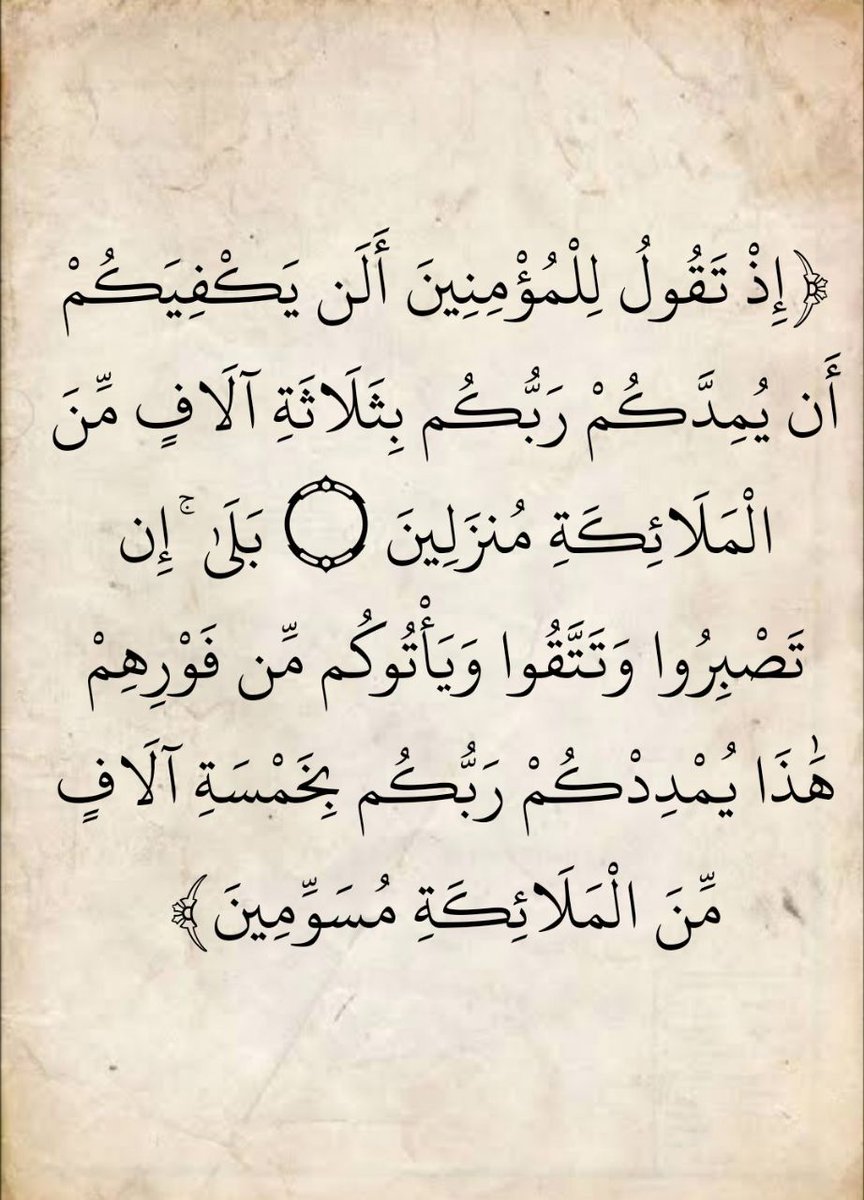 ﴿إِذْ تَقُولُ لِلْمُؤْمِنِينَ أَلَن يَكْفِيَكُمْ
أَن يُمِدَّكُمْ رَبُّكُم بِثَلَاثَةِ آلَافٍ مِّنَ
الْمَلَائِكَةِ مُنزَلِينَ ۝ بَلَىٰ ۚ إِن
تَصْبِرُوا وَتَتَّقُوا وَيَأْتُوكُم مِّن فَوْرِهِمْ
هَٰذَا يُمْدِدْكُمْ رَبُّكُم بِخَمْسَةِ آلَافٍ
مِّنَ الْمَلَائِكَةِ مُسَوِّمِينَ﴾